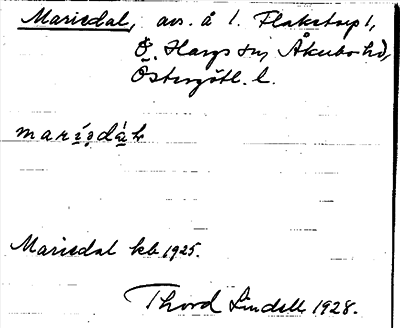 Mariedal, avs. å l. Flakstorp 1,
Ö. Hargs sn, Åkerbo hd,
Östergötl. l.
Mariedal kb 1925.
Thord Lindell 1928.